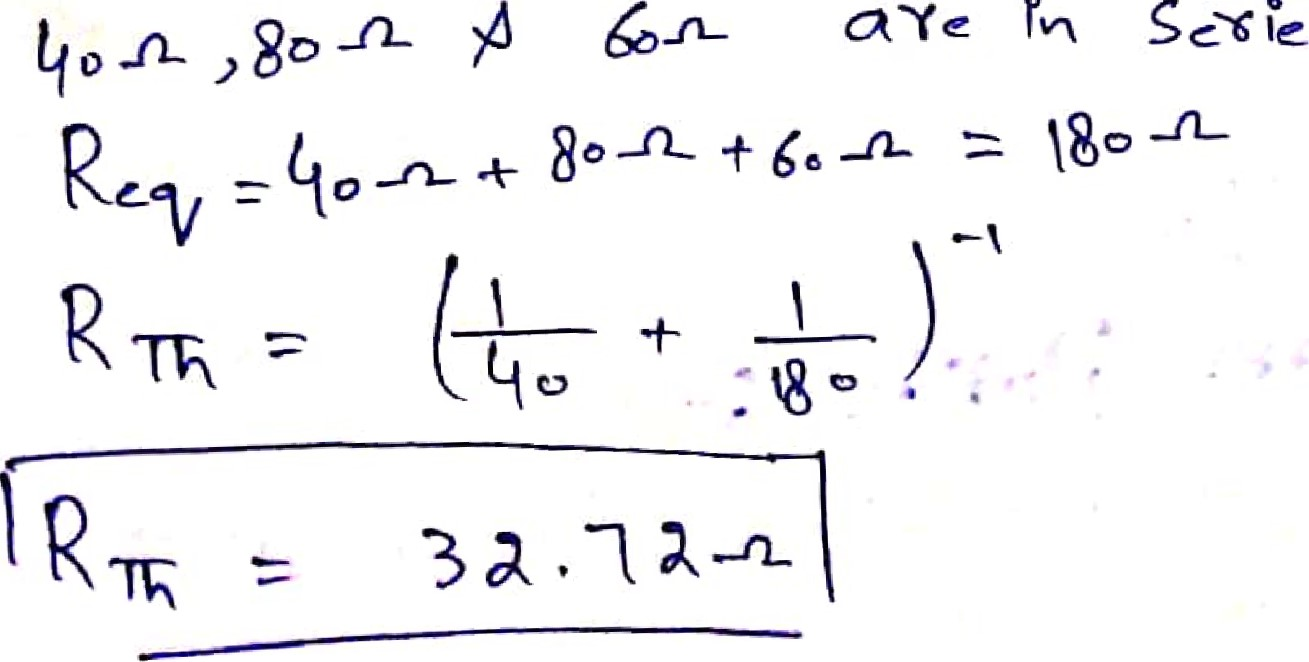 40Ω, 80Ω & 60Ω are in Serie
Req = 40Ω + 80Ω + 60Ω = 180Ω
RTh = (1/40 + 1/180)^-1
RTh = 32.72Ω